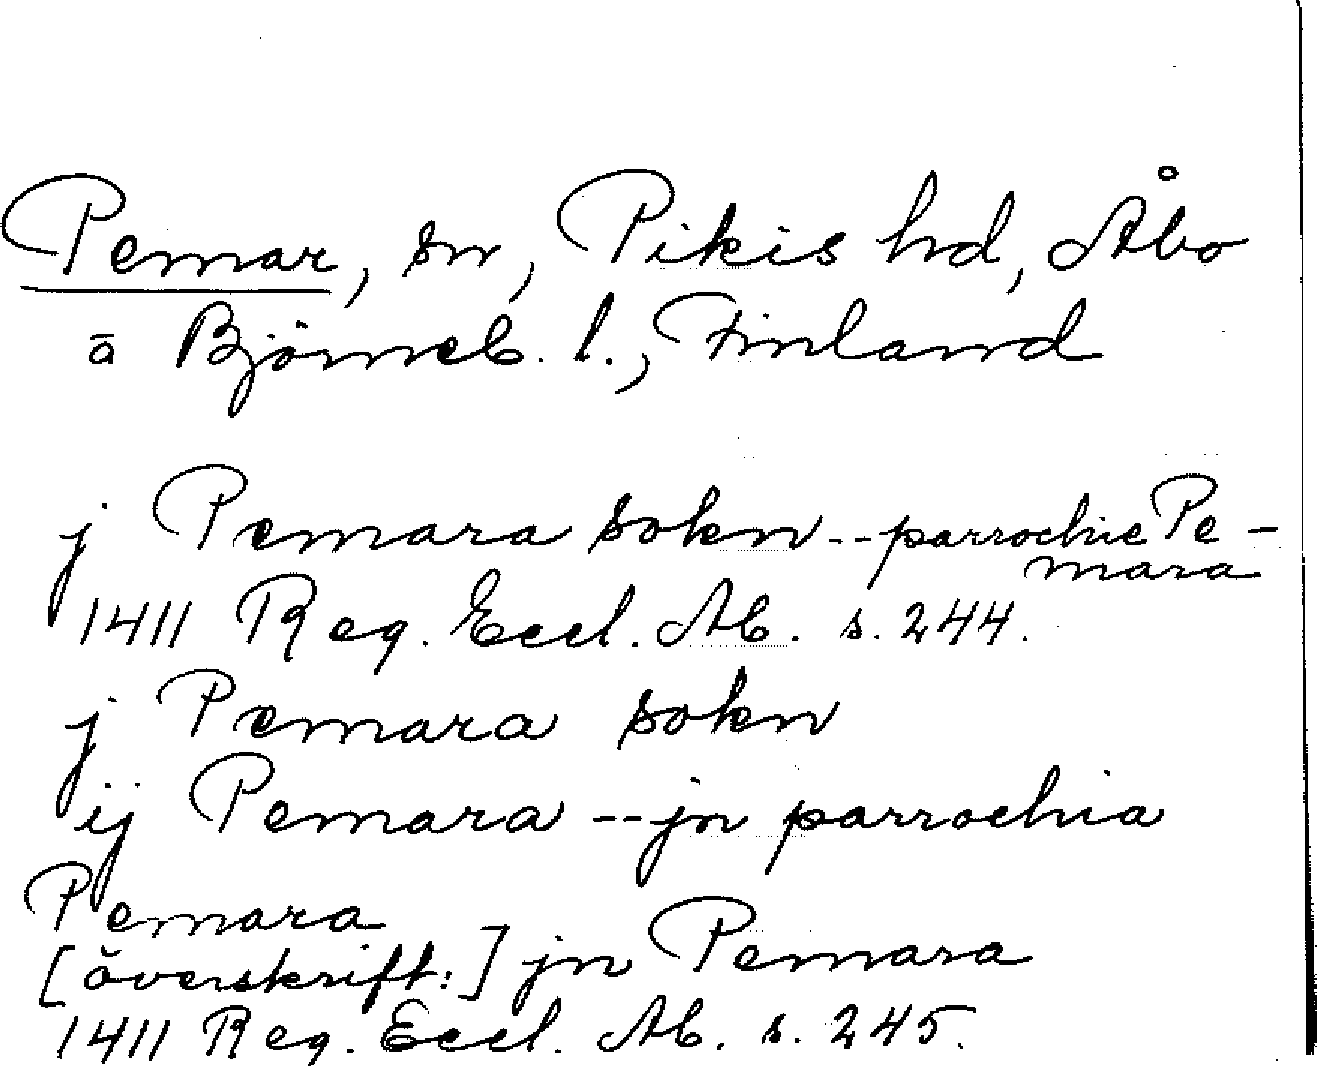 Pemar, sn, Pikis hd, Åbo
o Björneb. l., Finland
j Pemara sokn -- parrochie Pe-
mara
1411 Reg. Eccl. Ab. s. 244.
j Pemara sokn
ij Pemara -- jn parrochia
Pemara
[överskrift:] jn Pemara
1411 Reg. Eccl. Ab. s. 245.